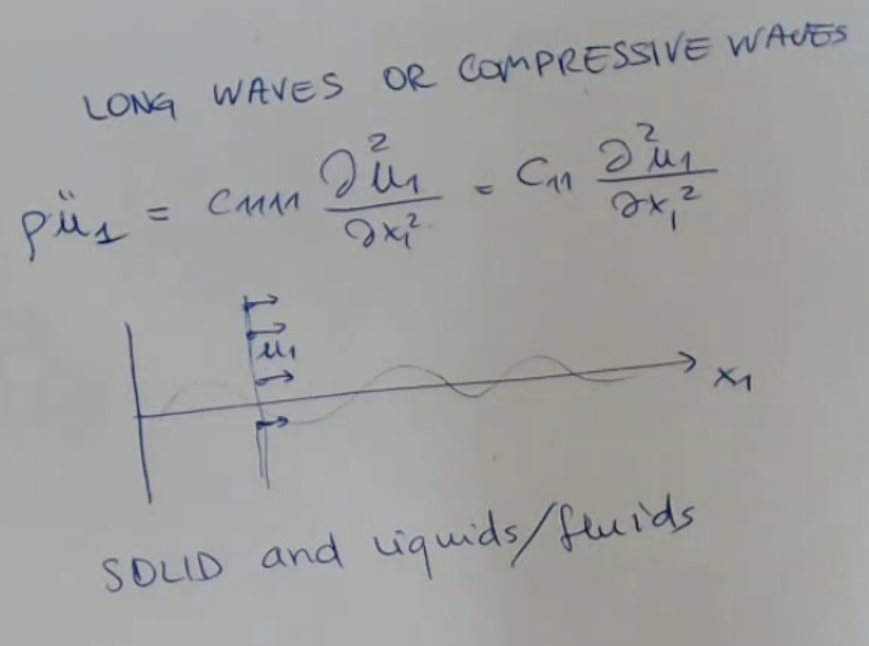 LONG WAVES OR COMPRESSIVE WAVES
ρü₁ = C₁₁₁₁ ∂²u₁/∂x₁² = C₁₁ ∂²u₁/∂x₁²
u₁
x₁
SOLID and liquids/fluids